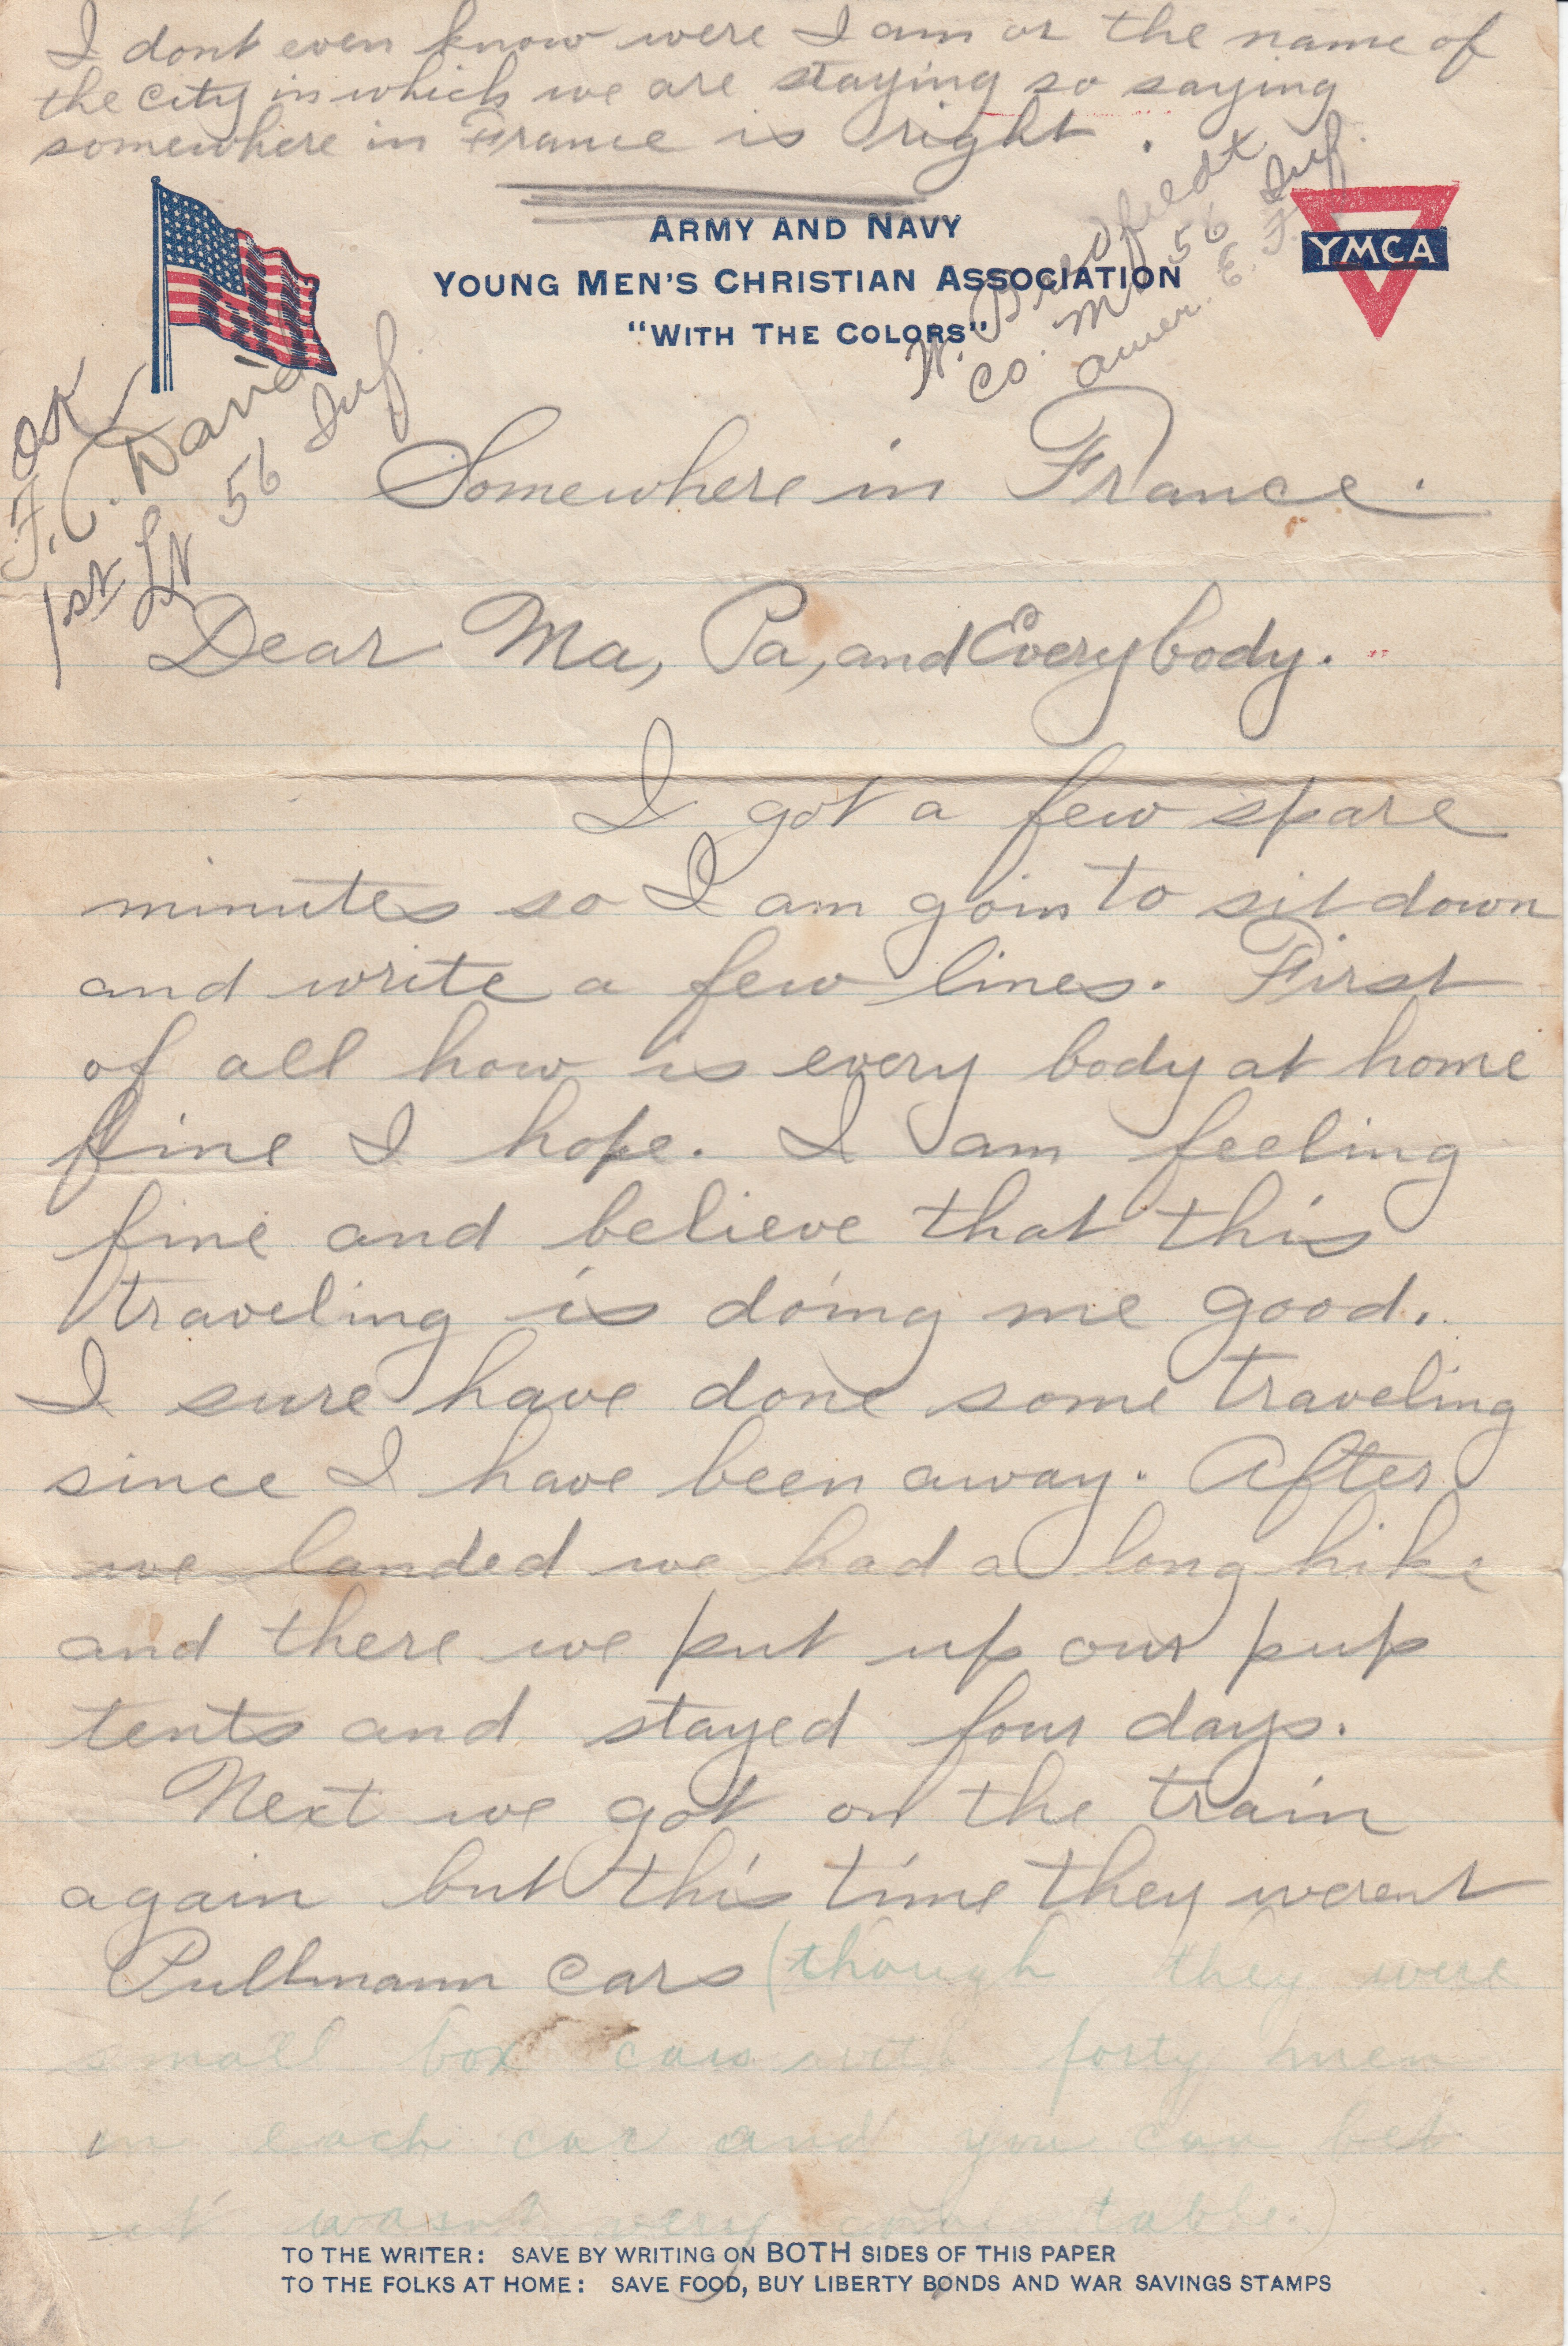 I dont even know were I am or the name of
the city in which we are staying so saying
somewhere in France is right.
ARMY AND NAVY
YOUNG MEN'S CHRISTIAN ASSOCIATION
"WITH THE COLORS"
YMCA
W. Bredfieldt
Co. M. 56 Inf.
Amer. E. F.
OK
F. C. Davis
1st Lt 56 Inf.
Somewhere in France.
Dear Ma, Pa, and Everybody.
I got a few spare
minutes so I am goin to sit down
and write a few lines. First
of all how is every body at home
fine I hope. I am feeling
fine and believe that this
traveling is doing me good.
I sure have done some traveling
since I have been away. After
we landed we had a long hike
and there we put up our pup
tents and stayed four days.
Next we got on the train
again but this time they werent
Pullmann cars (though they were
small box cars with forty men
in each car and you can bet
it wasnt very
TO THE WRITER: SAVE BY WRITING ON BOTH SIDES OF THIS PAPER
TO THE FOLKS AT HOME: SAVE FOOD, BUY LIBERTY BONDS AND WAR SAVINGS STAMPS